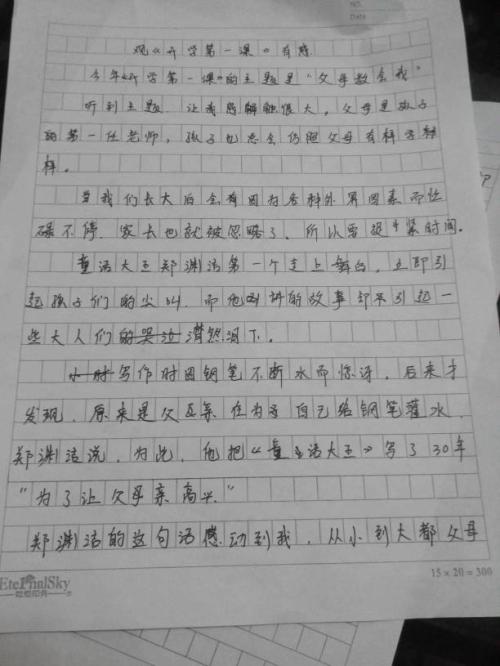 NO.
DATE
观《开学第一课》有感
今年《开学第一课》的主题是“父母教会我”
听到主题，让我感触很大，父母是孩子
的第一任老师，孩子也总会仿照父母有样学样
样。
当我们长大后会有因为各种外界因素而忙
碌不停，家长也就被忽略了，所以要抓紧时间。
童话大王郑渊洁第一个走上舞台，立即引
起孩子们的尖叫，而他所讲的故事却引起一
些大人们的哭泣潸然泪下。
小时写作时因钢笔不断水而惊讶，后来才
发现，原来是父亲在为自己给钢笔灌水，
郑渊洁说，为此，他把《童话大王》写了30年
“为了让父母亲高兴。”
郑渊洁的这句话感动到我，从小到大都父母
EternalSky
15×20=300